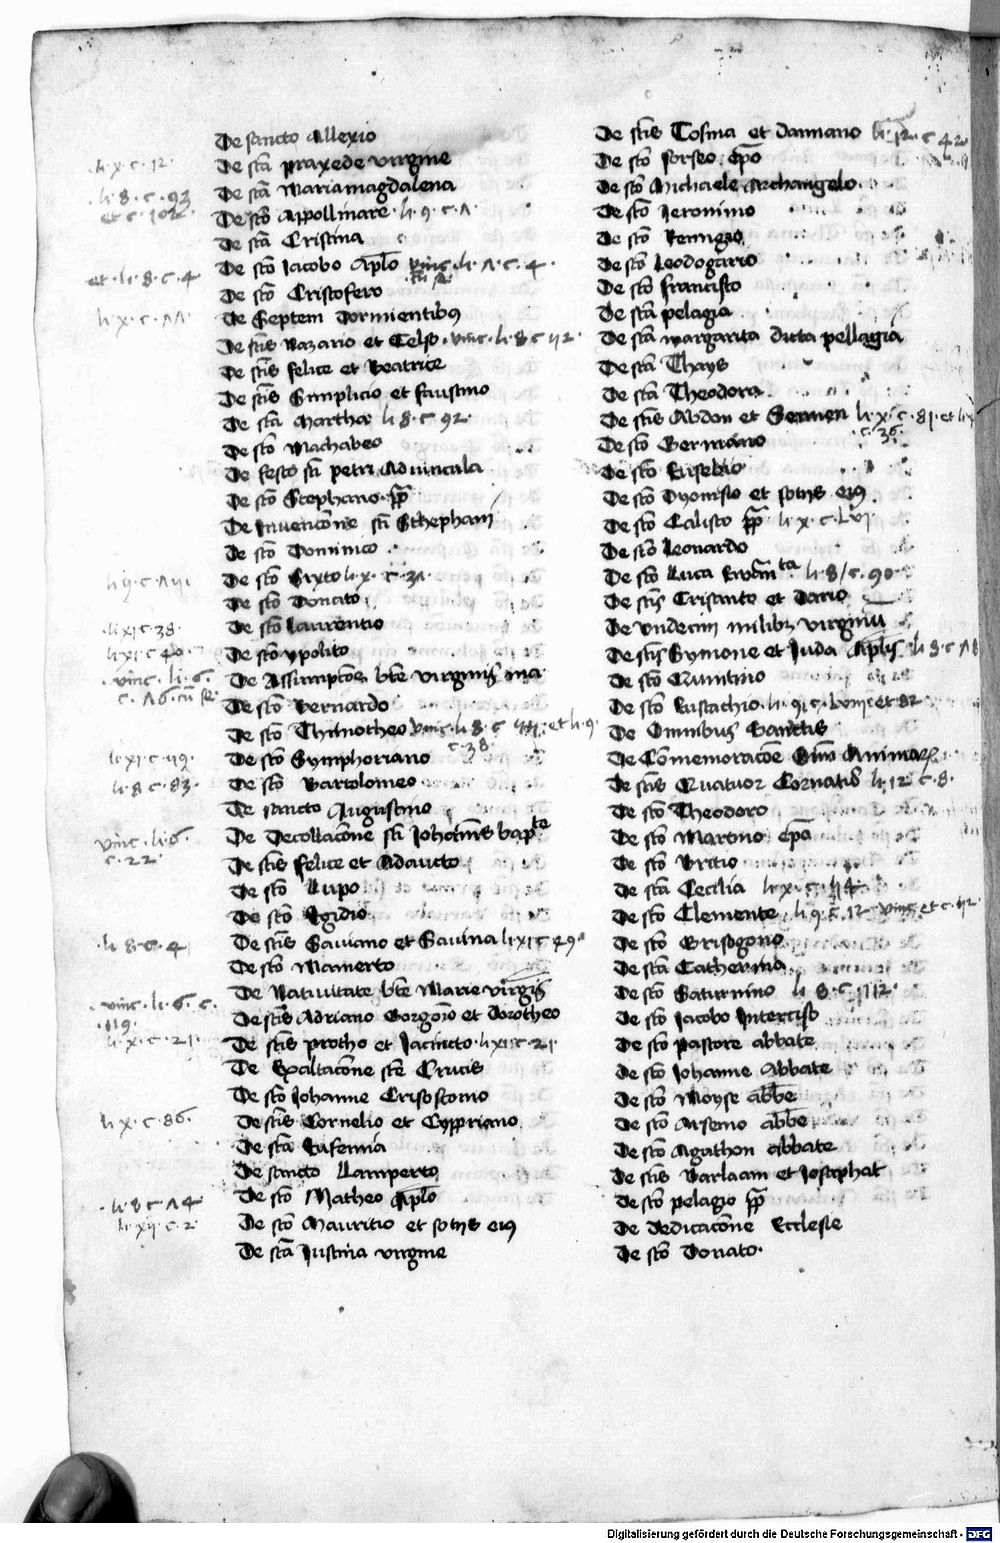 De sancto Allexio
li · x · c · 12 · De sta praxede virgine
· li · 8 · c · 93 De sta Mariamagdalena
et c · 102 · De sto Appollinare · li · 9 · c · Λ ·
De sta Cristina
et · li · 8 · c · 4 De sto Jacobo Aplo vinc · li · Λ · c · 4 ·
De sto Cristofero
li · x · c · ΛΛ · De Septem Dormientibus
De stis Nazario et Celso · vinc · li · 8 · c 112 ·
De stis felice et Beatrice
De stis Simplicio et faustino
De sta Martha li 8 · c · 92 ·
De sto Machabeo
De festo sti petri Advincula
De sto Stephano pp
De Invencone sti Sthephani
De sto Dominico
De sto Sixto li · x · c · 3Λ ·
De sto Donato
li xi c · 38 · De sto Laurentio
li · xi c · 40 · De sto ypolito
· vinc · li · 6 · De Assumptoe bte virginis ma
c · Λ6 · De sto Bernardo
De sto Thimotheo vinc · li · 8 · c et li · 9
c · 38
li · xi · c · 119 · De sto Symphoriano
li · 8 · c · 83 · De sto Bartolomeo
De sancto Augustino
vinc · li · 6 De Decollacone sti Johannis bapte
c · 22 · De stis felice et Adaucto
De sto Lupo
De sto Egidio
· li · 8 · c · 4 De stis Saviano et Savina li xi c 49
De sto Mamerto
· vinc · li · 6 · c · De Nativitate bte Marie virgis
· 119 · De stis Adriano Gorgonio et Dorotheo
li · x · c · 21 · De stis protho et Jacincto · li xi c · 21 ·
De Exaltacone ste Crucis
De sto Johanne Crisostomo
li · x · c · 86 · De stis Cornelio et Cyppriano
De sta Eufemia
De sancto Lamperto
· li · 8 c · Λ4 De sto Matheo Aplo
li · xii · c · 2 · De sto Mauritio et sotiis eius
De sta Justina virgine
De stis Cosma et Damiano li · 12 · c 42
De sto forseo epo
De sto Michaele Archangelo
De sto Jeronimo
De sto Remigio
De sto Leodogario
De sto francisco
De sta pelagia
De sta margarita dicta pellagia
De sta Thays
De sta Theodora
De stis Abdon et Sennen li · x · c · 81 · et li
· c · 36 ·
De sto Germano
De sto Eusebio
De sto Dyonisio et sotiis eius
De sto Calisto pp li · x · c · LVI ·
De sto Leonardo
De sto Luca Ewanta li · 8 / c · 90
De stis Crisanto et Dario
De undecim milibus virginu
De stis Symone et Juda Aplis li 8 · c Λ8
De sto Quintino
De sto Eustachio · li · 9 · c · Lviii et 82
De Omnibus Sanctis
De Comemoracoe Oim Animar
De stis Quatuor Cornatis li 12 c · 8 ·
De sto Theodoro
De sto Martino epo
De sto Britio
De sta Cecilia li · xi · c
De sto Clemente li 9 c · 12 · vinc et c · 112 ·
De sto Grisogono
De sta Catherina
De sto Saturnino li 8 · c · 112 ·
De sto Jacobo Interciso
De sto Pastore abbate
De sto Johanne Abbate
De sto Moyse abbe
De sto Arsenio abbe
De sto Agathon abbate
De stis Barlaam et Josaphat
De sto pelagio pp
De dedicacone Ecclesie
De sto Donato ·
Digitalisierung gefördert durch die Deutsche Forschungsgemeinschaft - DFG